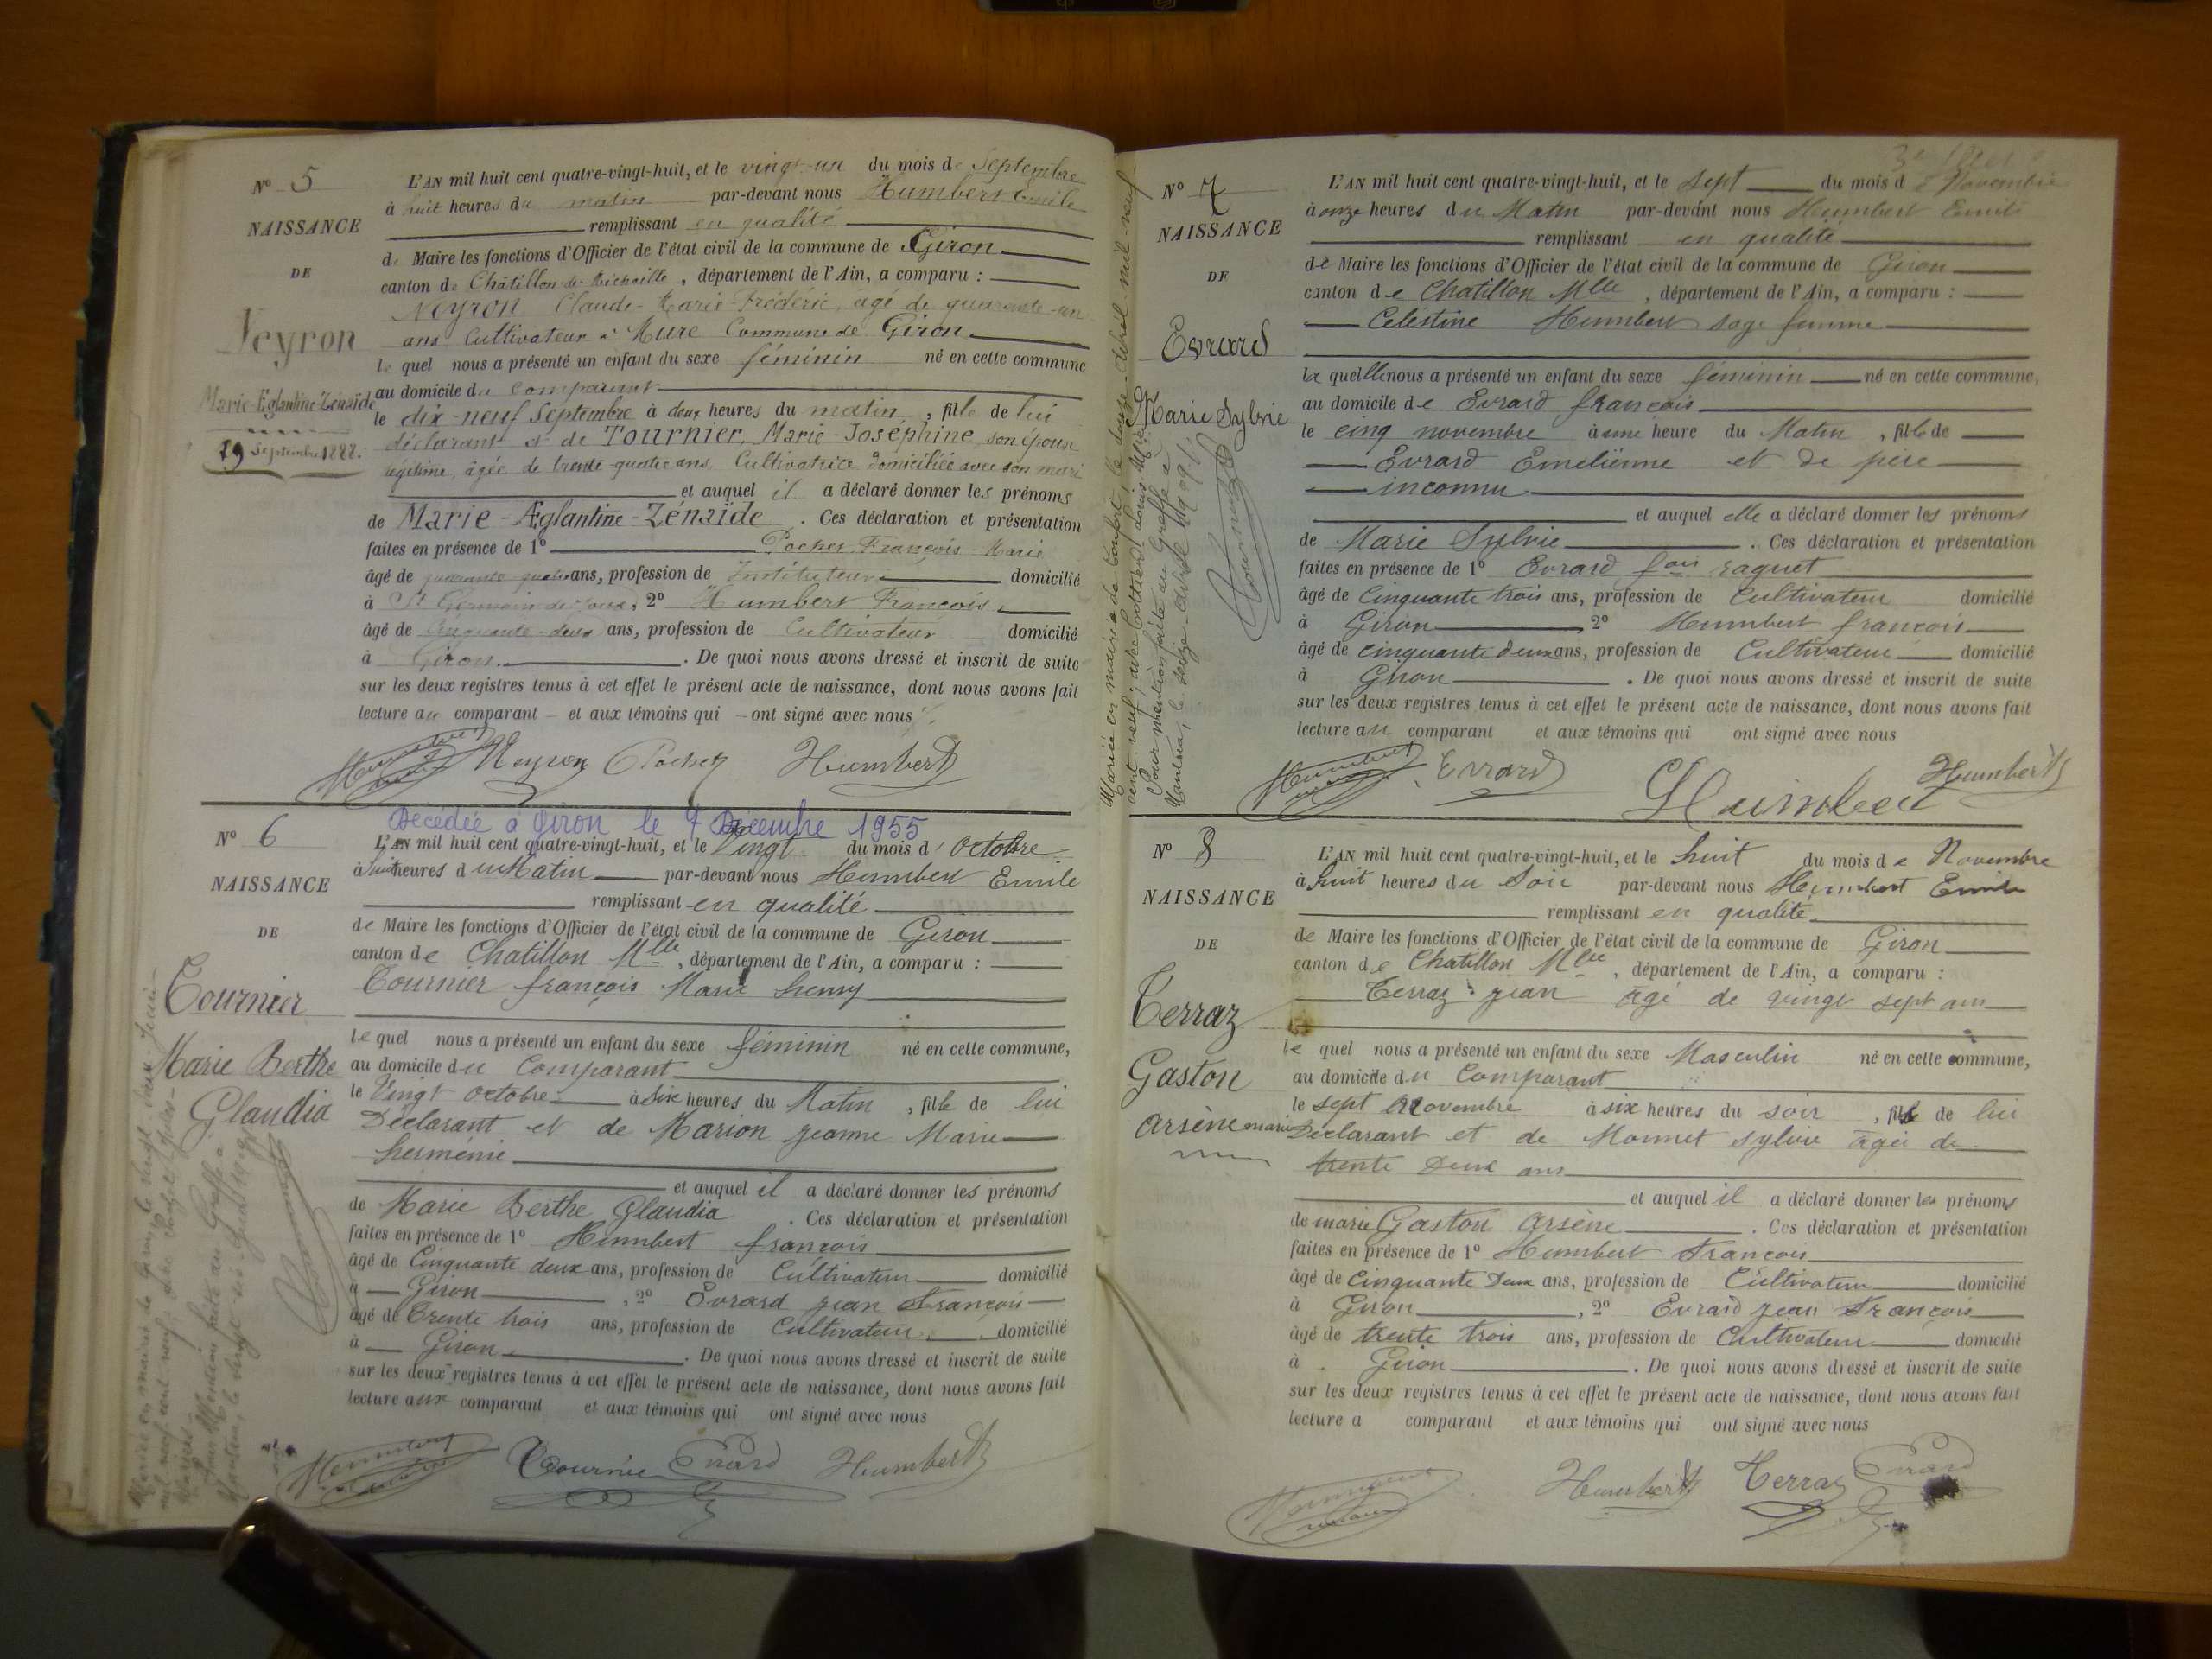 N° 5
NAISSANCE
DE
Neyron
Marie-Eglantine-Zénaïde
19 Septembre 1888.
L'AN mil huit cent quatre-vingt-huit, et le vingt-un du mois de Septembre
à huit heures du matin par-devant nous Humbert Emile
remplissant en qualité
de Maire les fonctions d'Officier de l'état civil de la commune de Giron
canton de Châtillon-de-Michaille, département de l'Ain, a comparu :
Neyron Claude-Marie-Frédéric, agé de quarante-un
ans Cultivateur à Mure Commune de Giron
le quel nous a présenté un enfant du sexe féminin né en cette commune
au domicile du comparant
le dix-neuf Septembre à deux heures du matin, fille de lui
déclarant et de Tournier, Marie-Joséphine, son épouse
légitime, âgée de trente-quatre ans, Cultivatrice domiciliée avec son mari
et auquel il a déclaré donner les prénoms
de Marie-Æglantine-Zénaïde. Ces déclaration et présentation
faites en présence de 1° Pochet François-Marie
âgé de quarante-quatre ans, profession de Instituteur domicilié
à St Germain-de-Joux, 2° Humbert François
âgé de cinquante-deux ans, profession de Cultivateur domicilié
à Giron. De quoi nous avons dressé et inscrit de suite
sur les deux registres tenus à cet effet le présent acte de naissance, dont nous avons fait
lecture au comparant et aux témoins qui ont signé avec nous
Humbert Neyron Pochet Humbert
Décédée à Giron le 7 Décembre 1955
N° 6
NAISSANCE
DE
Tournier
Marie Berthe
Glaudia
L'AN mil huit cent quatre-vingt-huit, et le Vingt du mois d'octobre
à huit heures du Matin par-devant nous Humbert Emile
remplissant en qualité
de Maire les fonctions d'Officier de l'état civil de la commune de Giron
canton de Chatillon Mlle, département de l'Ain, a comparu :
Tournier françois Marie henry
le quel nous a présenté un enfant du sexe féminin né en cette commune,
au domicile du Comparant
le Vingt octobre à six heures du Matin, fille de lui
Déclarant et de Marion jeanne Marie
herménie
et auquel il a déclaré donner les prénoms
de Marie Berthe Glaudia. Ces déclaration et présentation
faites en présence de 1° Humbert françois
âgé de Cinquante deux ans, profession de Cultivateur domicilié
à Giron, 2° Evrard jean François
âgé de Trente trois ans, profession de Cultivateur domicilié
à Giron. De quoi nous avons dressé et inscrit de suite
sur les deux registres tenus à cet effet le présent acte de naissance, dont nous avons fait
lecture aux comparant et aux témoins qui ont signé avec nous
Tournier Evrard Humbert
N° 7
NAISSANCE
DE
Evrard
Marie Sylvie
Mariée en mairie de Confort, le douze avril mil-neuf
cent neuf, avec Cottier
Pour mention faite au Greffe à
Nantua, le seize avril 1909
L'AN mil huit cent quatre-vingt-huit, et le sept du mois de Novembre
à onze heures du Matin par-devant nous Humbert Emile
remplissant en qualité
de Maire les fonctions d'Officier de l'état civil de la commune de Giron
canton de Chatillon Mlle, département de l'Ain, a comparu :
Célestine Humbert sage femme
la quelle nous a présenté un enfant du sexe féminin né en cette commune,
au domicile de Evrard françois
le cinq novembre à une heure du Matin, fille de
Evrard Emelienne et de père
inconnu
et auquel elle a déclaré donner les prénoms
de Marie Sylvie. Ces déclaration et présentation
faites en présence de 1° Evrard fois raquet
âgé de Cinquante trois ans, profession de Cultivateur domicilié
à Giron, 2° Humbert françois
âgé de cinquante deux ans, profession de Cultivateur domicilié
à Giron. De quoi nous avons dressé et inscrit de suite
sur les deux registres tenus à cet effet le présent acte de naissance, dont nous avons fait
lecture au comparant et aux témoins qui ont signé avec nous
Humbert Evrard Humbert Humbert
N° 8
NAISSANCE
DE
Terraz
Gaston
arsène marie
L'AN mil huit cent quatre-vingt-huit, et le huit du mois de Novembre
à huit heures du Soir par-devant nous Humbert Emile
remplissant en qualité
de Maire les fonctions d'Officier de l'état civil de la commune de Giron
canton de Chatillon Mlle, département de l'Ain, a comparu :
Terraz jean agé de vingt sept ans
le quel nous a présenté un enfant du sexe Masculin né en cette commune,
au domicile du Comparant
le sept Novembre à six heures du soir, fils de lui
Déclarant et de Monnet sylvie agée de
trente Deux ans
et auquel il a déclaré donner les prénoms
de marie Gaston arsène. Ces déclaration et présentation
faites en présence de 1° Humbert François
âgé de Cinquante Deux ans, profession de Cultivateur domicilié
à Giron, 2° Evrard jean François
âgé de trente trois ans, profession de Cultivateur domicilié
à Giron. De quoi nous avons dressé et inscrit de suite
sur les deux registres tenus à cet effet le présent acte de naissance, dont nous avons fait
lecture a comparant et aux témoins qui ont signé avec nous
Humbert Terraz Evrard